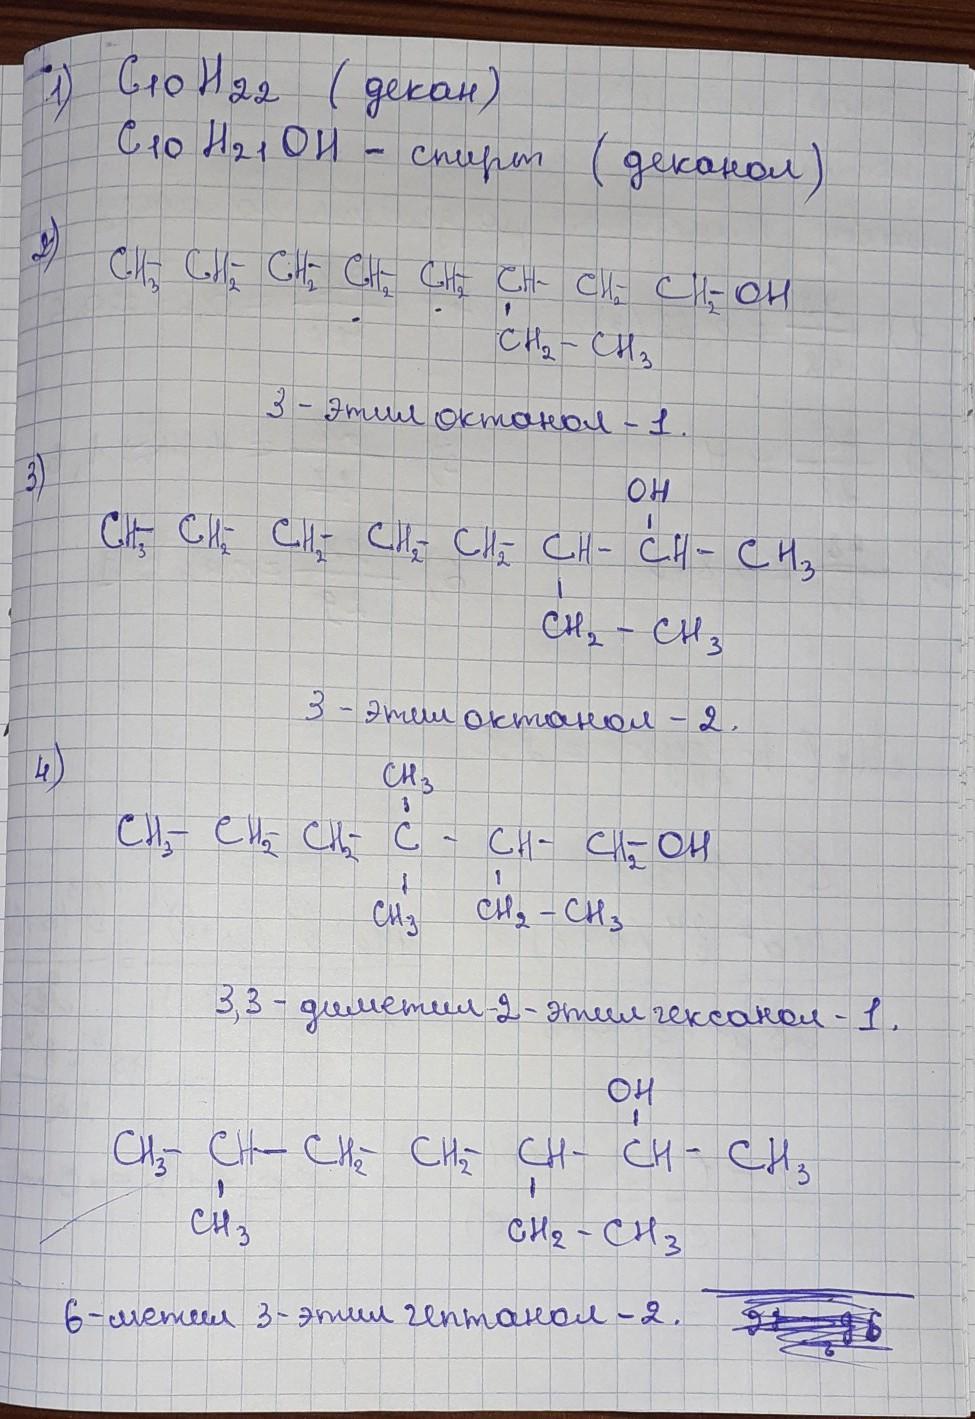 1) C10H22 (декан)
C10H21OH - спирт (деканол)
2) CH3- CH2- CH2- CH2- CH2- CH- CH2- CH2- OH
CH2 - CH3
3 - этил октанол - 1.
3)
OH
CH3- CH2- CH2- CH2- CH2- CH- CH- CH3
CH2 - CH3
3 - этил октанол - 2.
4)
CH3
CH3- CH2- CH2- C - CH- CH2- OH
CH3 CH2 - CH3
3,3 - диметил-2-этил гексанол - 1.
OH
CH3- CH- CH2- CH2- CH- CH- CH3
CH3 CH2 - CH3
6-метил 3-этил гептанол - 2.